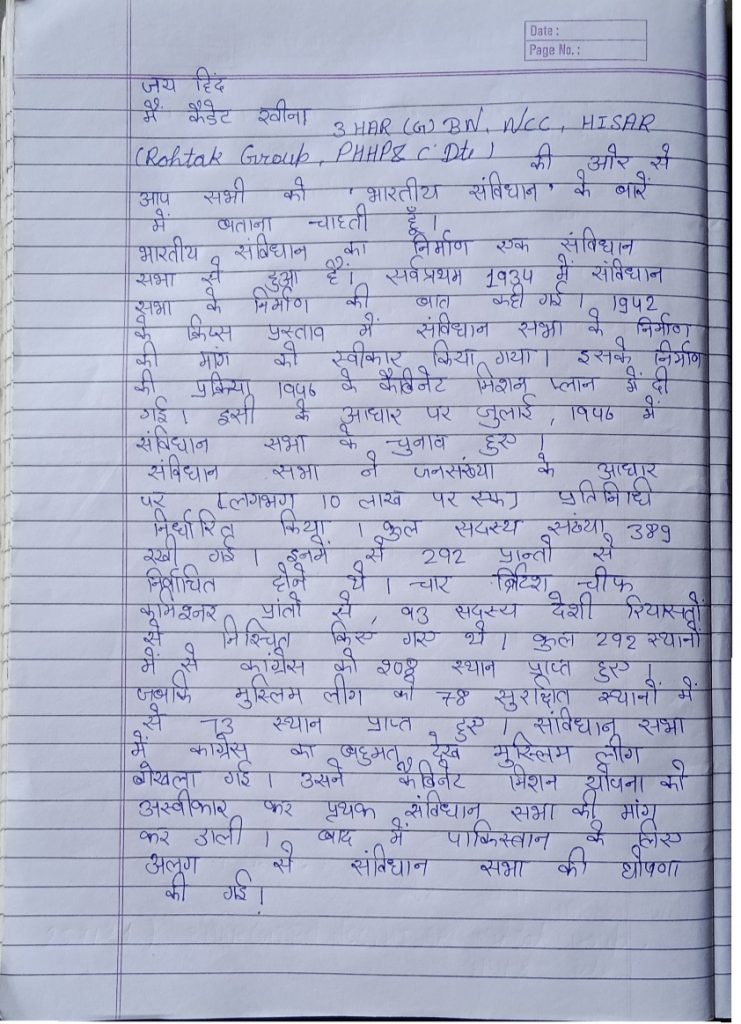 Date :
Page No. :
जय हिंद
मैं कैडेट रवीना 3 HAR (G) BN, NCC, HISAR
(Rohtak Group, PHHP& C Dte) की ओर से
आप सभी को 'भारतीय संविधान' के बारें
में बताना चाहती हूँ।
भारतीय संविधान का निर्माण एक संविधान
सभा से हुआ है। सर्वप्रथम 1934 में संविधान
सभा के निर्माण की बात कही गई। 1942
के क्रिप्स प्रस्ताव में संविधान सभा के निर्माण
की मांग को स्वीकार किया गया। इसके निर्माण
की प्रक्रिया 1946 के कैबिनेट मिशन प्लान में दी
गई। इसी के आधार पर जुलाई, 1946 में
संविधान सभा के चुनाव हुए।
संविधान सभा ने जनसंख्या के आधार
पर (लगभग 10 लाख पर एक) प्रतिनिधि
निर्धारित किया। कुल सदस्य संख्या 389
रखी गई। इनमें से 292 प्रान्तो से
निर्वाचित होने थे। चार ब्रिटिश चीफ
कमिश्नर प्रांतो से, 93 सदस्य देशी रियासतों
से निश्चित किए गए थे। कुल 292 स्थानों
में से कांग्रेस को 208 स्थान प्राप्त हुए।
जबकि मुस्लिम लीग को 78 सुरक्षित स्थानों में
से 73 स्थान प्राप्त हुए। संविधान सभा
में कांग्रेस का बहुमत देख मुस्लिम लीग
बोखला गई। उसने कैबिनेट मिशन योजना को
अस्वीकार कर प्रथक संविधान सभा की मांग
कर डाली। बाद में पाकिस्तान के लिए
अलग से संविधान सभा की घोषणा
की गई।